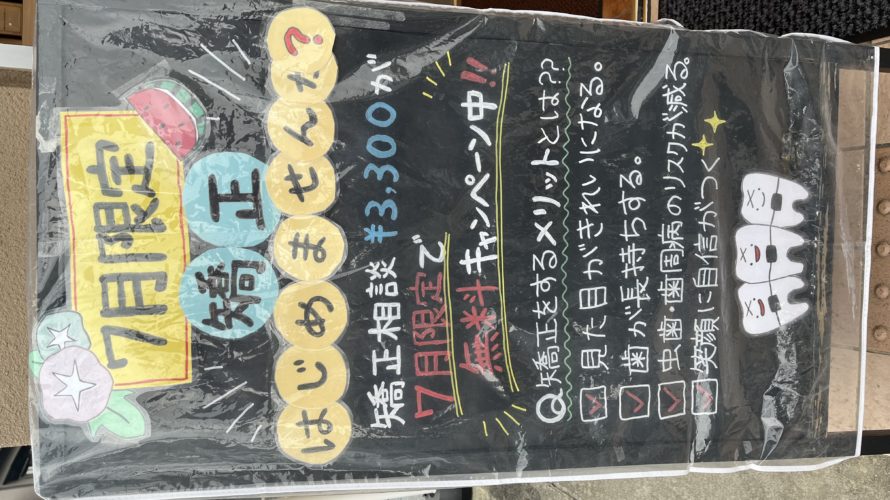 7月限定
矯正
はじめませんか?
矯正相談 ¥3,300が
7月限定で
無料キャンペーン中!!
Q矯正をするメリットとは??
見た目がきれいになる。
歯が長持ちする。
虫歯・歯周病のリスクが減る。
笑顔に自信がつく